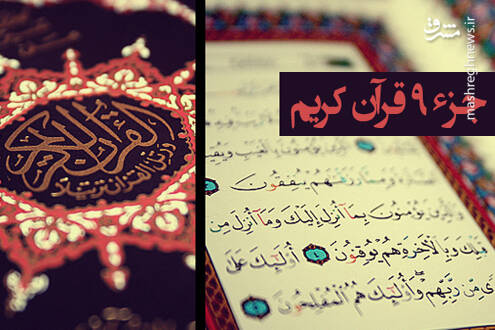 مشرق
mashreghnews.ir
جزء ۹ قرآن کریم
القرآن الكريم
ورتل القرآن ترتيلا
يُؤْمِنُونَ بِالْغَيْبِ وَيُقِي
وَمِمَّا رَزَقْنَاهُمْ يُنفِقُونَ
وَالَّذِينَ يُؤْمِنُونَ بِمَا أُنزِلَ إِلَيْكَ وَمَا أُنزِلَ مِن
قَبْلِكَ وَبِالْآخِرَةِ هُمْ يُوقِنُونَ ٤ أُولَٰئِكَ عَلَىٰ
ى مِّن رَّبِّهِمْ وَأُولَٰئِكَ هُمُ الْمُفْلِحُونَ ٥